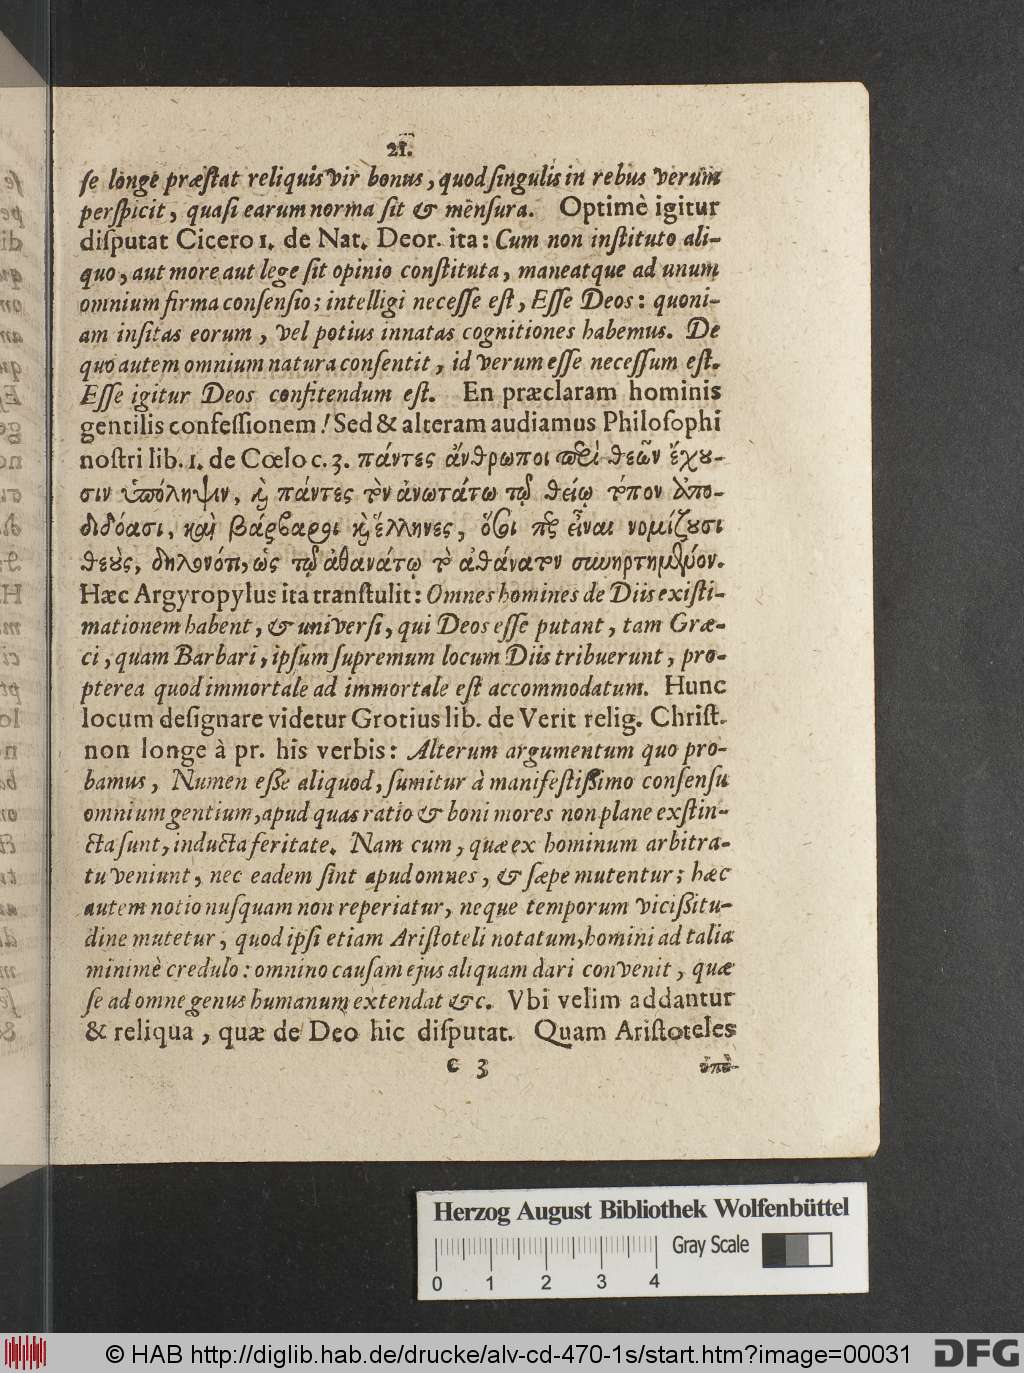 21.
ſe longè præſtat reliquis vir bonus, quod ſingulis in rebus verum
perſpicit, quaſi earum norma ſit & menſura. Optimè igitur
diſputat Cicero 1. de Nat. Deor. ita: Cum non inſtituto ali-
quo, aut more aut lege ſit opinio conſtituta, maneatque ad unum
omnium firma conſenſio; intelligi neceſſe eſt, Eſſe Deos: quoni-
am inſitas eorum, vel potius innatas cognitiones habemus. De
quo autem omnium natura conſentit, id verum eſſe neceſſum eſt.
Eſſe igitur Deos confitendum eſt. En præclaram hominis
gentilis confeſſionem! Sed & alteram audiamus Philoſophi
noſtri lib. 1. de Cœlo c. 3. πάντες ἄνθρωποι περὶ θεῶν ἔχου-
σιν ὑπόληψιν, καὶ πάντες τὸν ἀνωτάτω τῷ θείῳ τόπον ἀπο-
διδόασι, καὶ βάρβαροι καὶ ἕλληνες, ὅσοι περ εἶναι νομίζουσι
θεοὺς, δηλονότι, ὡς τῷ ἀθανάτῳ τὸ ἀθάνατον συνηρτημένον.
Hæc Argyropylus ita tranſtulit: Omnes homines de Diis exiſti-
mationem habent, & univerſi, qui Deos eſſe putant, tam Græ-
ci, quam Barbari, ipſum ſupremum locum Diis tribuerunt, pro-
pterea quod immortale ad immortale eſt accommodatum. Hunc
locum deſignare videtur Grotius lib. de Verit relig. Chriſt.
non longe à pr. his verbis: Alterum argumentum quo pro-
bamus, Numen eſſe aliquod, ſumitur à manifeſtiſſimo conſenſu
omnium gentium, apud quas ratio & boni mores non plane exſtin-
cta ſunt, inducta feritate. Nam cum, quæ ex hominum arbitra-
tu veniunt, nec eadem ſint apud omnes, & ſæpe mutentur; hæc
autem notio nuſquam non reperiatur, neque temporum viciſſitu-
dine mutetur, quod ipſi etiam Ariſtoteli notatum, homini ad talia
minimè credulo: omnino cauſam ejus aliquam dari convenit, quæ
ſe ad omne genus humanum extendat &c. Vbi velim addantur
& reliqua, quæ de Deo hic diſputat. Quam Ariſtoteles
C 3
ὑπὸ-
Herzog August Bibliothek Wolfenbüttel
Gray Scale
0 1 2 3 4
© HAB http://diglib.hab.de/drucke/alv-cd-470-1s/start.htm?image=00031
DFG